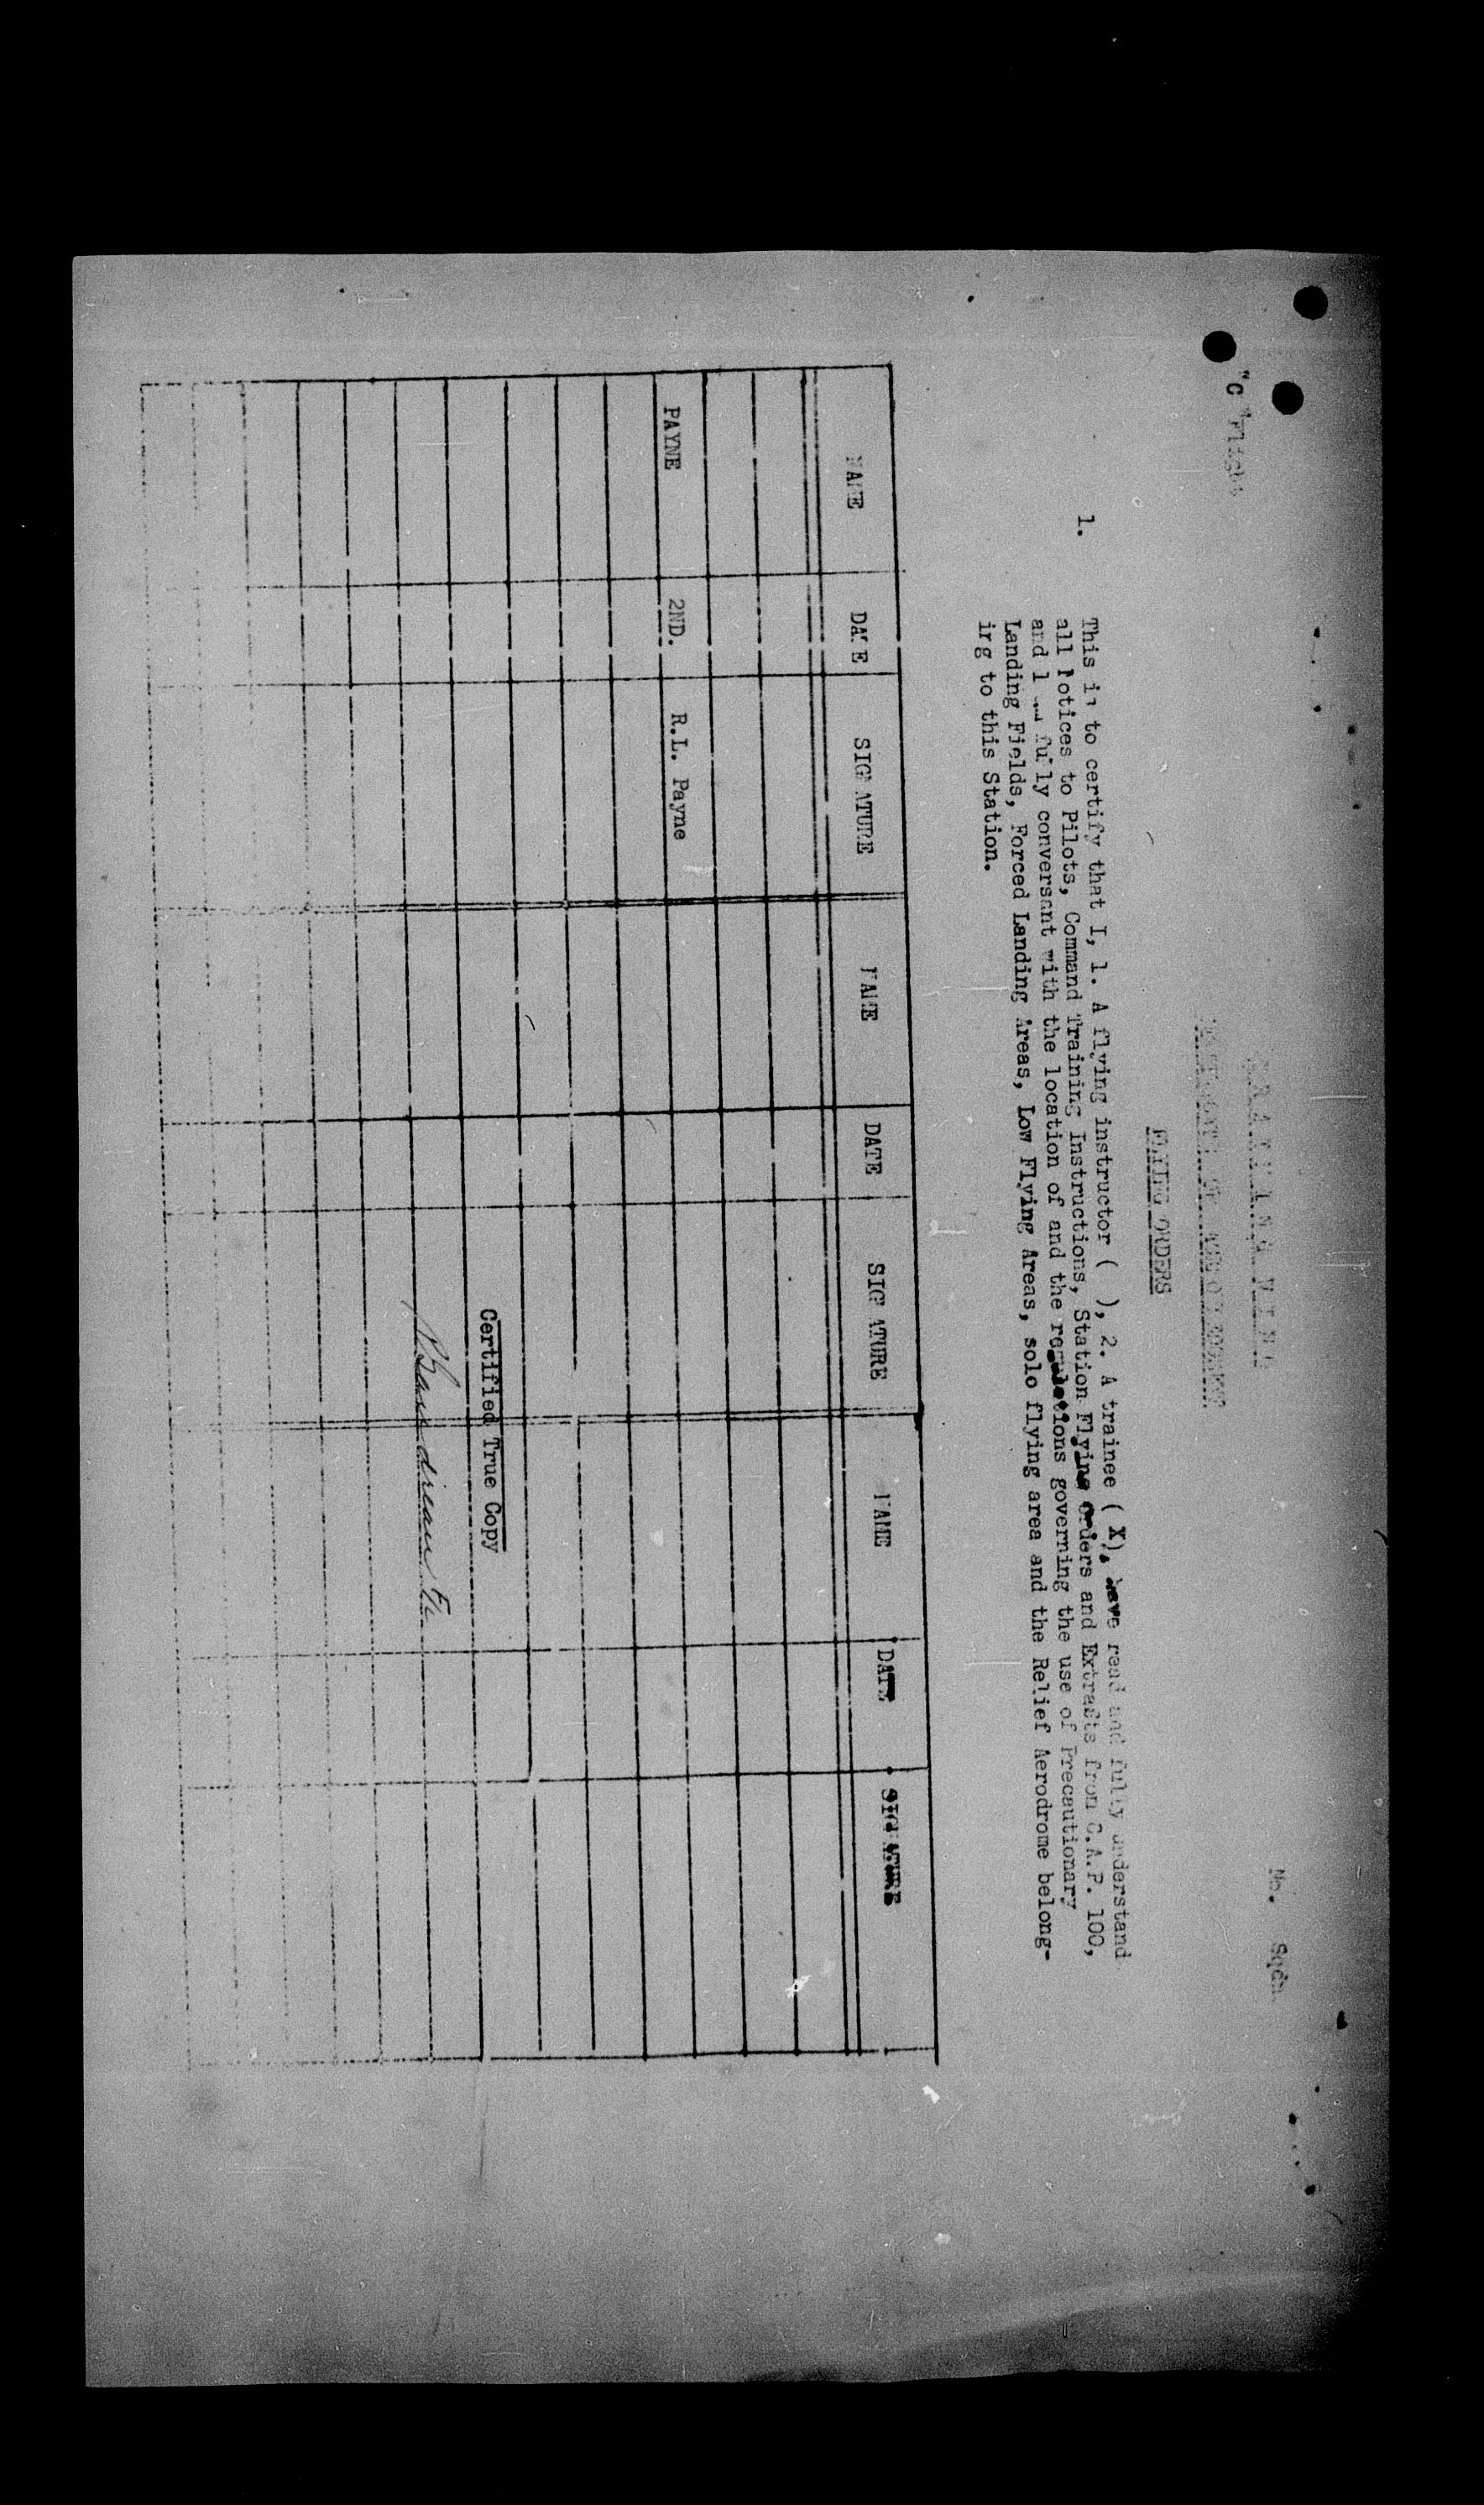 "C" Flight
No. Sqdn.
FLYING ORDERS
1. This is to certify that I, 1. A flying instructor ( ), 2. A trainee ( X), have read and fully understand
all Notices to Pilots, Command Training Instructions, Station Flying Orders and Extracts from C.A.P. 100,
and I fully conversant with the location of and the regulations governing the use of Precautionary
Landing Fields, Forced Landing Areas, Low Flying Areas, solo flying area and the Relief Aerodrome belong-
ing to this Station.
NAME DATE SIGNATURE NAME DATE SIGNATURE NAME DATE SIGNATURE
PAYNE 2ND. R.L. Payne
Certified True Copy